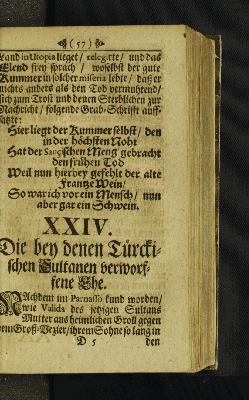 (57)
Land in Utopia lieget / relegirte / und das
Elend sien sprach / woselbst der gute
Kummer in solcher miseria lebte / daß er
nichts anders als den Tod vermuthend /
sich zum Trost und denen Sterblichen zur
Nachricht / folgende Grab-Schrifft auff-
satzte:
Hier liegt der Kummer selbst / den
in der höchsten Noht
Hat der Meng gebracht
den frühen Tod
Weil nun hierbey gefehlt der alte
Frantze Wein /
So war ich vor ein Mensch / nun
aber gar ein Schwein.
XXIV.
Die bey denen Türcki-
schen Sultanen verworf-
fene Ehe.
NAchdem im Parnasso kund worden /
wie Valida des jetzigen Sultans
Mutter aus heimlichen Groll gegen
dem Groß-Vezier / ihrem Sohne so lang in
D 5 den